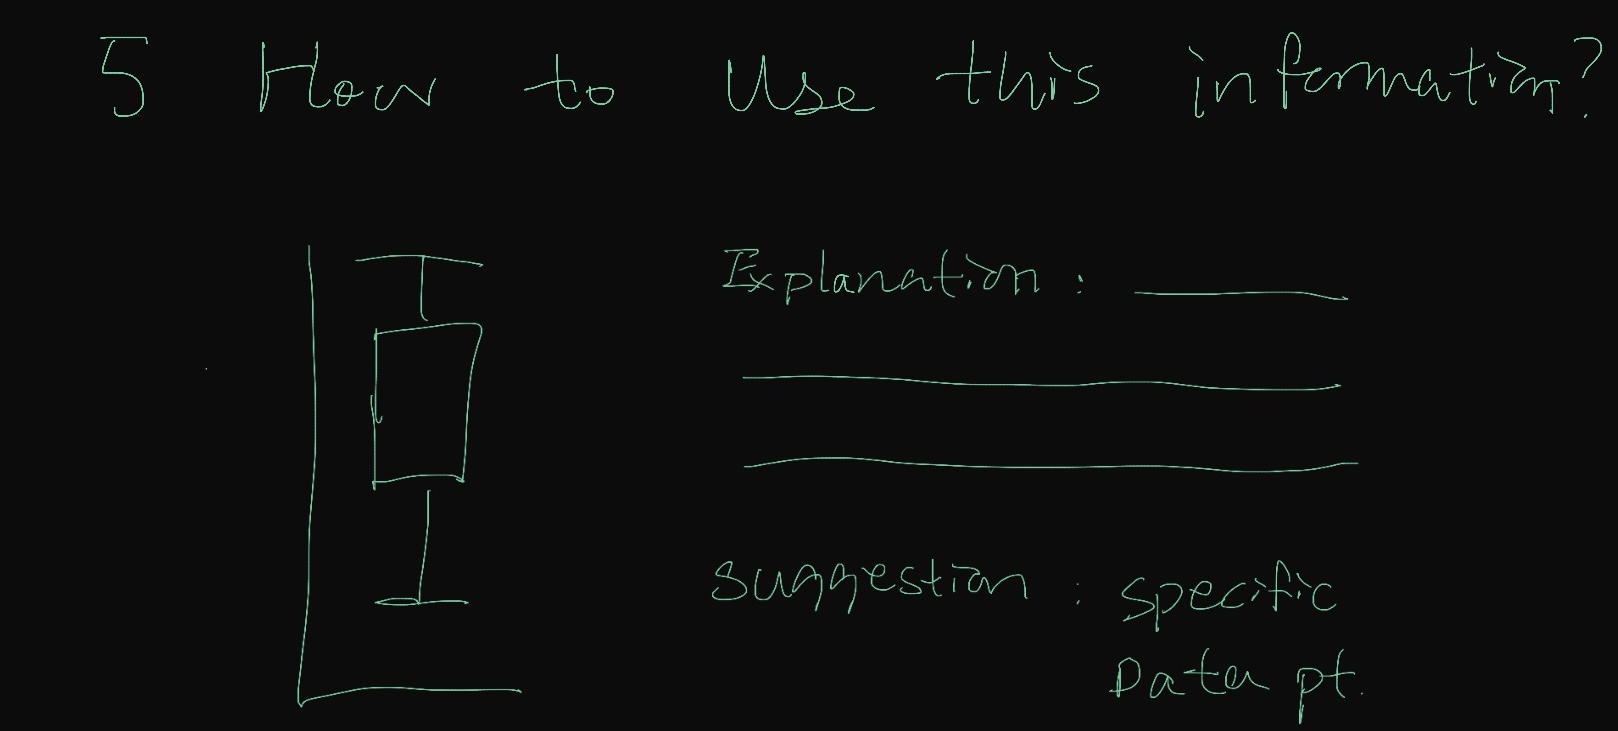 5 How to Use this information?
Explanation :
Suggestion : specific
Data pt.